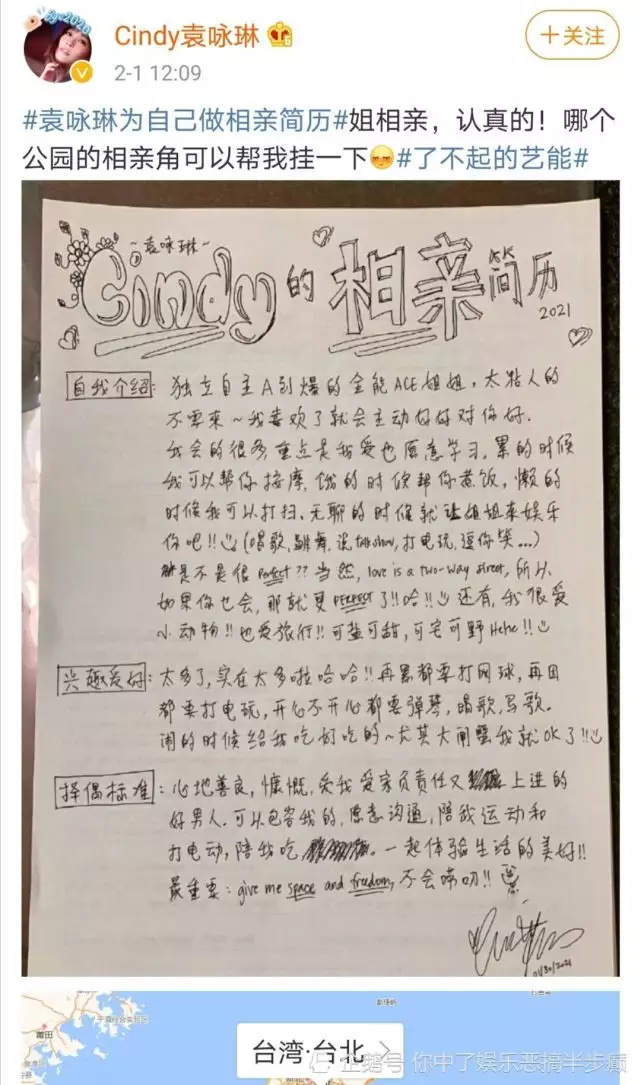 Cindy袁咏琳
2-1 12:09
+关注
#袁咏琳为自己做相亲简历#姐相亲，认真的！哪个
公园的相亲角可以帮我挂一下#了不起的艺能#
~袁咏琳~
Cindy的相亲简历
2021
自我介绍: 独立自主A到爆的全能ACE姐姐, 太黏人的
不要来~我喜欢了就会主动好好对你好.
我会的很多重点是我爱也愿意学习, 累的时候
我可以帮你按摩, 饿的时候帮你煮饭, 懒的
时候我可以打扫. 无聊的时候就让姐姐来娱乐
你吧!! (唱歌, 跳舞, 说talkshow, 打电玩, 逗你笑...)
是不是很perfect?? 当然, love is a two-way street, 所以
如果你也会, 那就更PERFECT了!! 哈!! 还有, 我很爱
小动物!! 也爱旅行!! 可盐可甜, 可宅可野Hehe!!
兴趣爱好: 太多了, 实在太多啦哈哈!! 再累都要打网球, 再困
都要打电玩, 开心不开心都要弹琴, 唱歌, 写歌.
闲的时候给我吃好吃的~尤其大闸蟹我就OK了!!
择偶标准: 心地善良, 慷慨, 爱我爱家负责任又上进的
好男人. 可以包容我的, 愿意沟通, 陪我运动和
打电动, 陪我吃. 一起体验生活的美好!!
最重要: give me space and freedom, 不会唠叨!!
01/30/2021
莆田
新竹县
台湾·台北
企鹅号 你中了娱乐恶搞半步癫